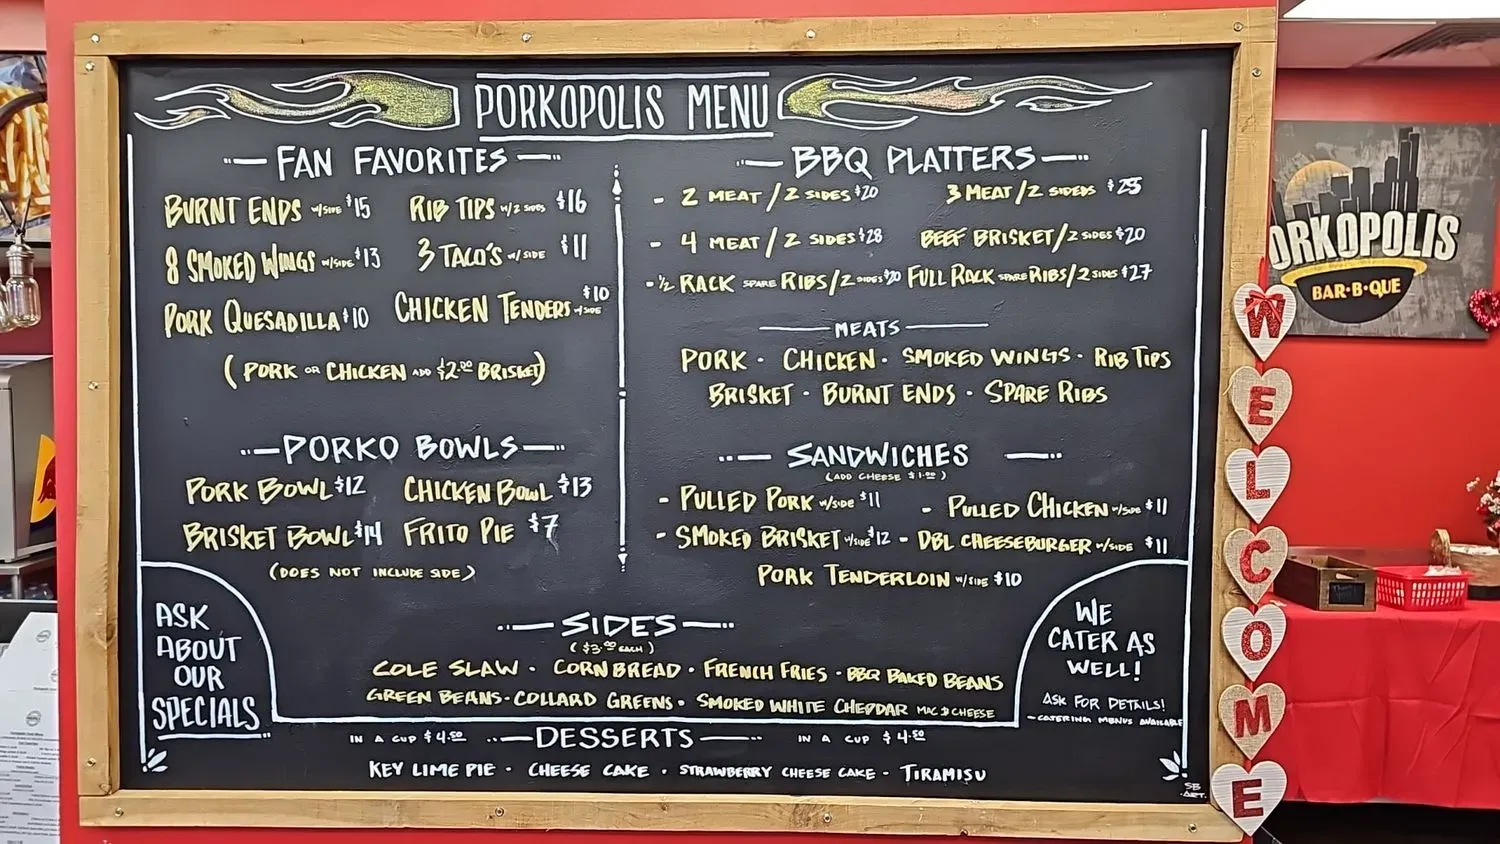 PORKOPOLIS MENU
FAN FAVORITES
BURNT ENDS W/SIDE $15 RIB TIPS W/2 SIDES $16
8 SMOKED WINGS W/SIDE $13 3 TACO'S W/SIDE $11
PORK QUESADILLA $10 CHICKEN TENDERS W/SIDE $10
(PORK OR CHICKEN ADD $2.00 BRISKET)
PORKO BOWLS
PORK BOWL $12 CHICKEN BOWL $13
BRISKET BOWL $14 FRITO PIE $7
(DOES NOT INCLUDE SIDE)
BBQ PLATTERS
- 2 MEAT/2 SIDES $20 3 MEAT/2 SIDEDS $25
- 4 MEAT/2 SIDES $28 BEEF BRISKET/2 SIDES $20
- ½ RACK SPARE RIBS/2 SIDES $20 FULL RACK SPARE RIBS/2 SIDES $27
MEATS
PORK · CHICKEN · SMOKED WINGS · RIB TIPS
BRISKET · BURNT ENDS · SPARE RIBS
SANDWICHES
(ADD CHEESE $1.00)
- PULLED PORK W/SIDE $11 - PULLED CHICKEN W/SIDE $11
- SMOKED BRISKET W/SIDE $12 - DBL CHEESEBURGER W/SIDE $11
PORK TENDERLOIN W/SIDE $10
SIDES
($3.00 EACH)
COLE SLAW · CORN BREAD · FRENCH FRIES · BBQ BAKED BEANS
GREEN BEANS · COLLARD GREENS · SMOKED WHITE CHEDDAR MAC & CHEESE
IN A CUP $4.50 DESSERTS IN A CUP $4.50
KEY LIME PIE · CHEESE CAKE · STRAWBERRY CHEESE CAKE · TIRAMISU
ASK
ABOUT
OUR
SPECIALS
WE
CATER AS
WELL!
ASK FOR DETAILS!
- CATERING MENUS AVAILABLE
SB
ART.
WELCOME
ORKOPOLIS
BAR·B·QUE